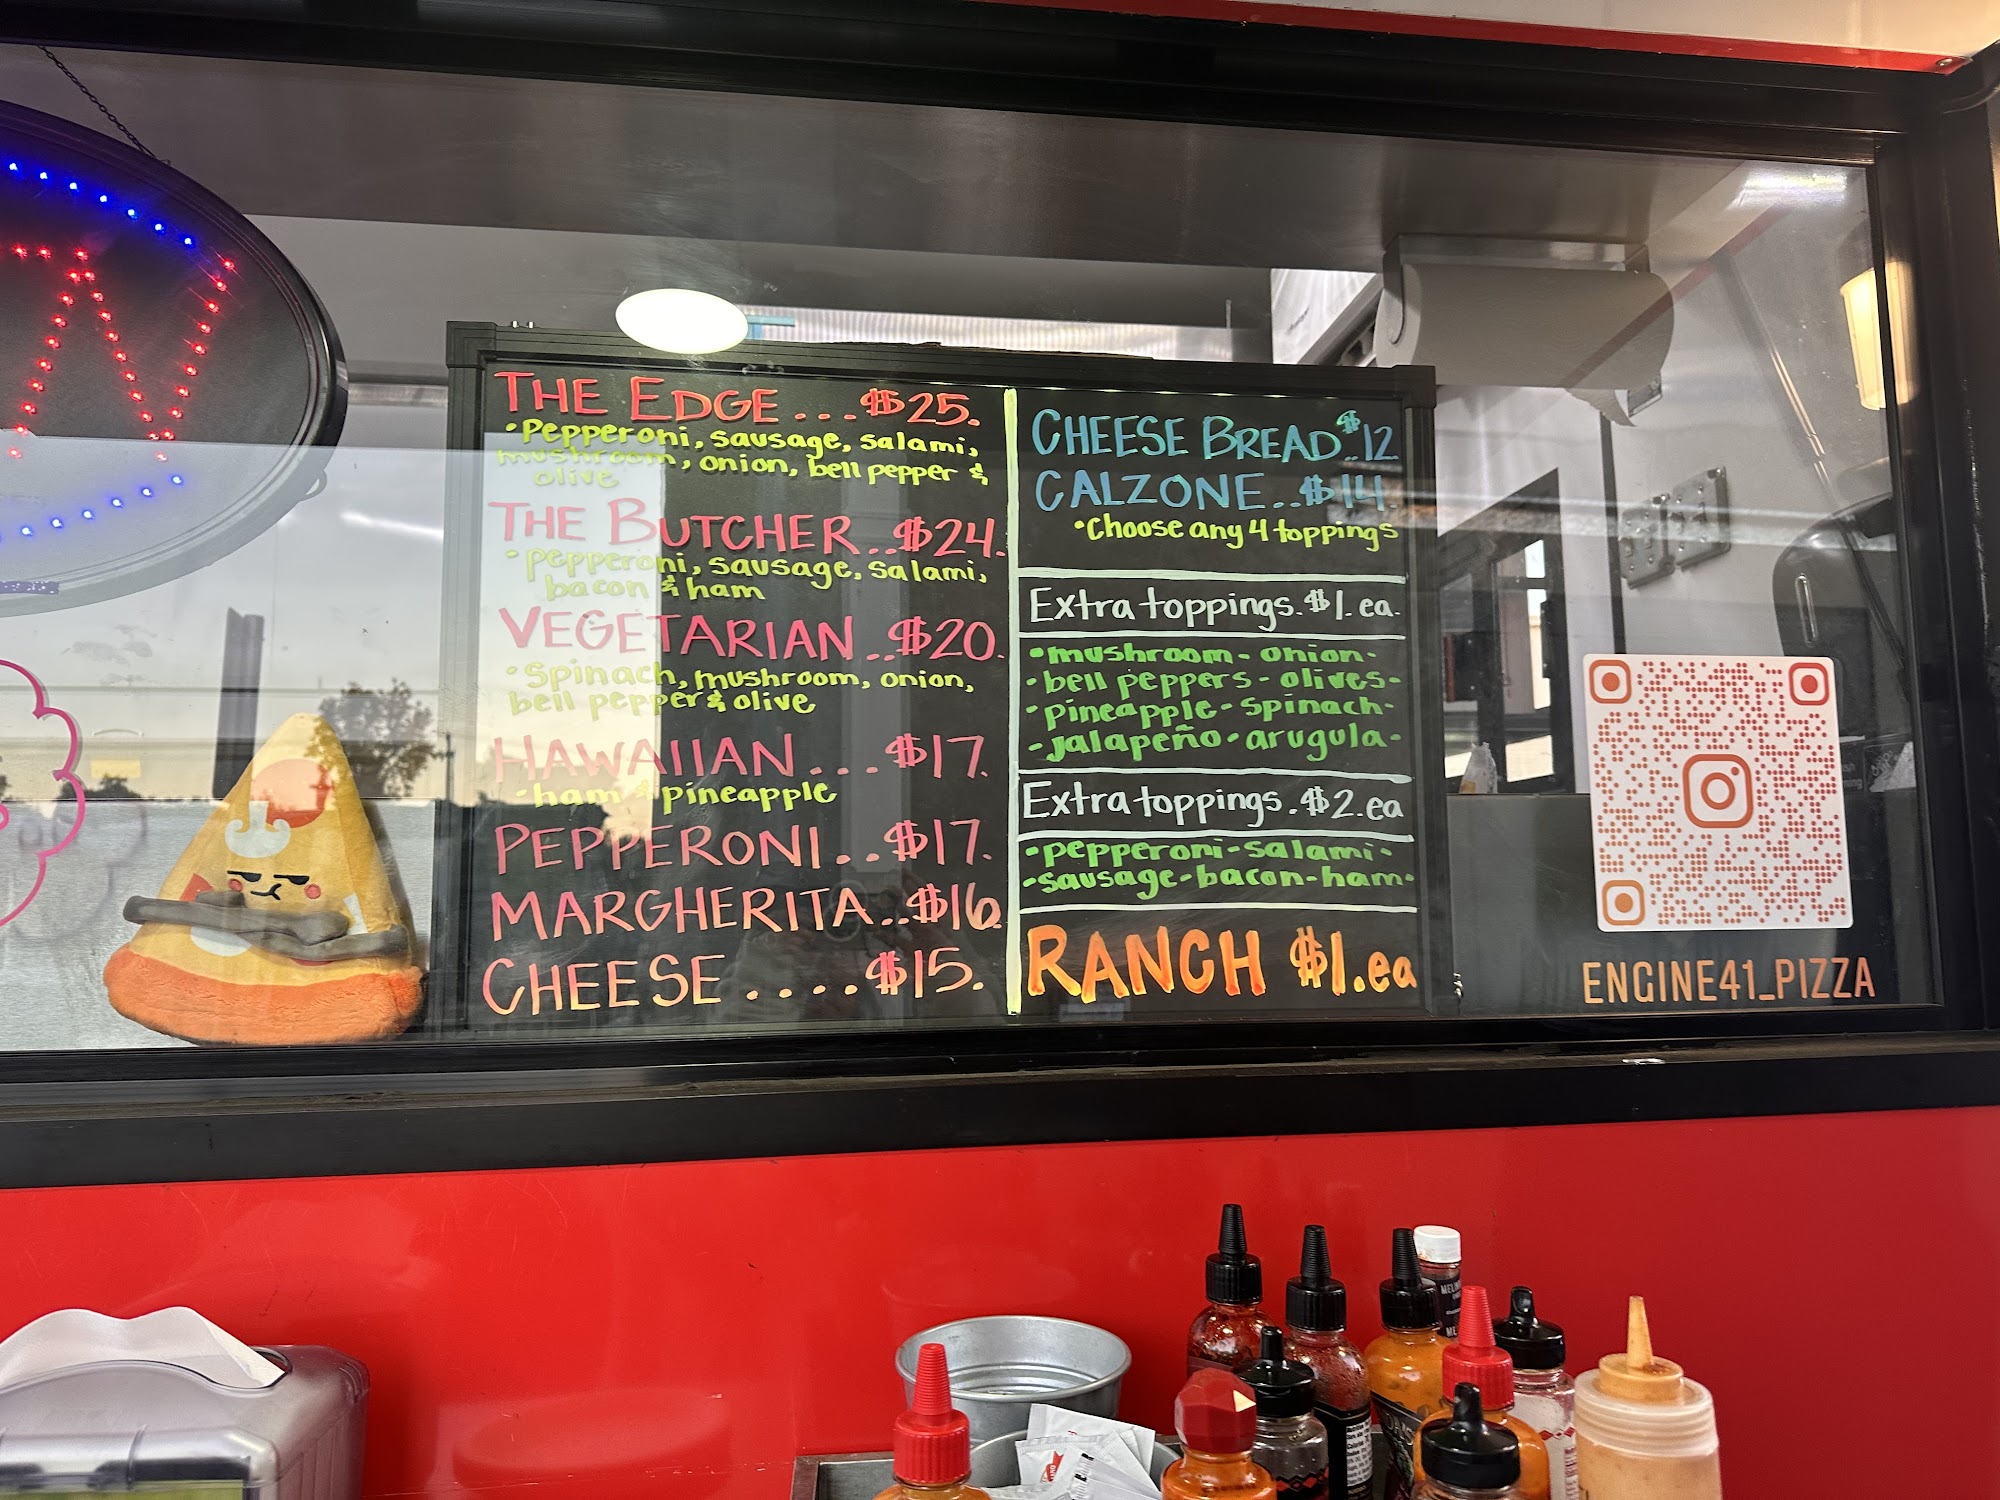 THE EDGE...$25.
•Pepperoni, sausage, salami,
mushroom, onion, bell pepper &
olive
THE BUTCHER..$24.
•Pepperoni, sausage, salami,
bacon & ham
VEGETARIAN..$20.
•Spinach, mushroom, onion,
bell pepper & olive
HAWAIIAN...$17.
•ham & pineapple
PEPPERONI..$17.
MARGHERITA..$16.
CHEESE....$15.
CHEESE BREAD..$12
CALZONE..$14.
•Choose any 4 toppings
Extra toppings.$1.ea.
•mushroom-onion-
•bell peppers-olives-
•pineapple-spinach-
-jalapeño•arugula-
Extra toppings.$2.ea
•pepperoni-salami-
•sausage-bacon-ham•
RANCH $1.ea
ENGINE41_PIZZA